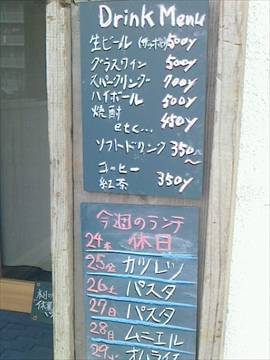 Drink Menu
生ビール(サッポロ) 500y
グラスワイン 500y
スパークリング 700y
ハイボール 500y
焼酎 450y
etc...
ソフトドリンク 350〜
コーヒー
紅茶 350y
今週のランチ
24木 休日
25金 カツレツ
26土 パスタ
27日 パスタ
28月 ムニエル
29火 オムライス